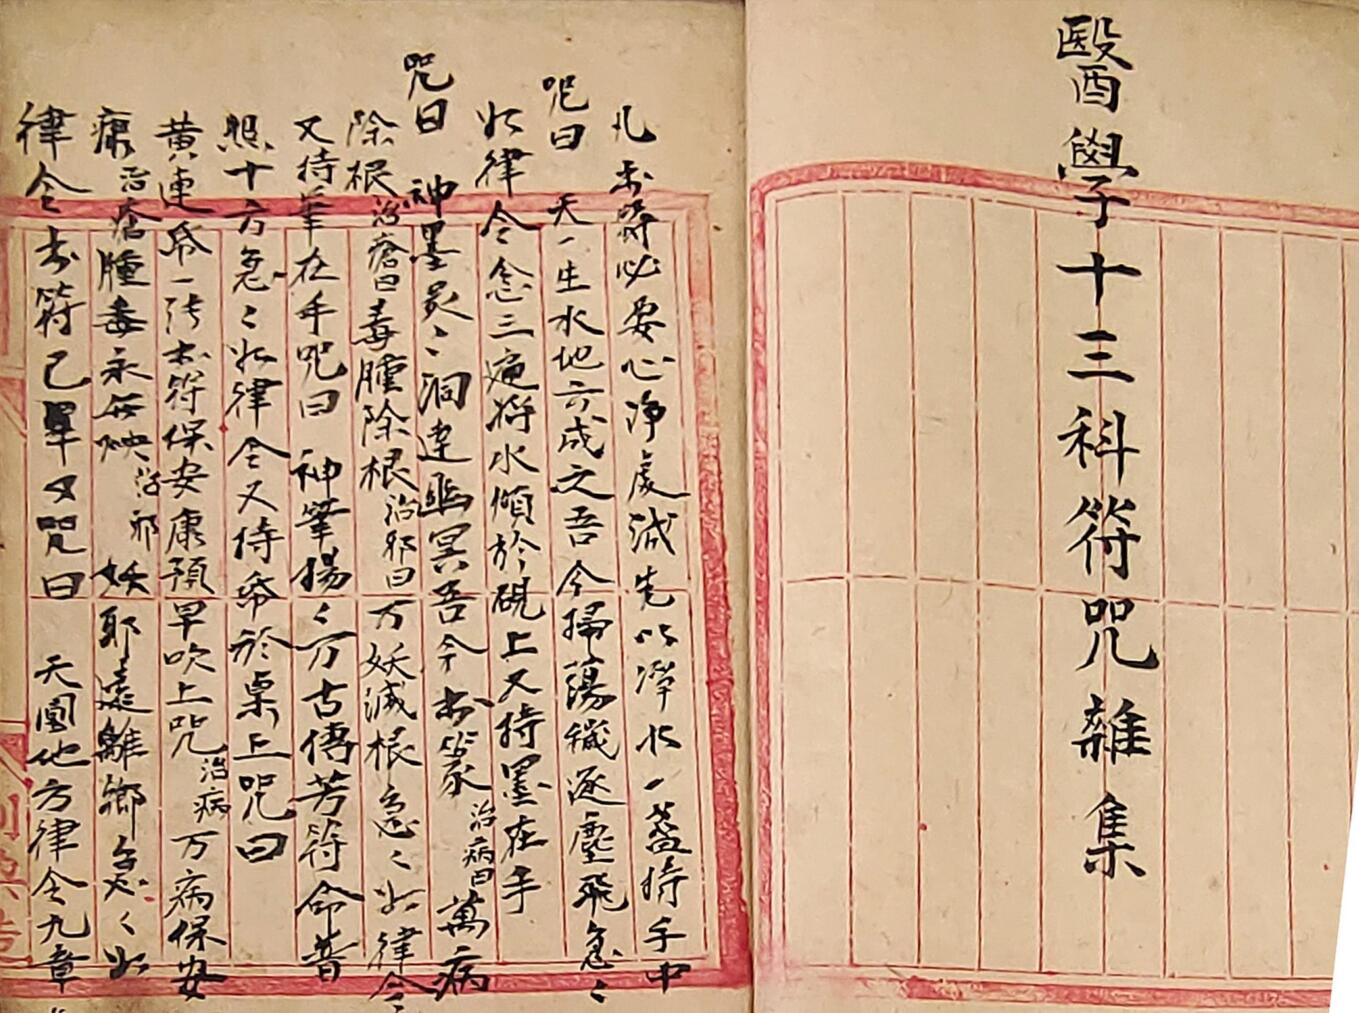 醫學十三科符咒雜集
凡書符必要心淨處誠先以淨水一盞持手中
咒曰 天一生水地六成之吾今掃蕩穢逐塵飛急〻
如律令念三遍将水傾於硯上又持墨在手
咒曰 神墨炅〻洞達幽冥吾今書篆治病曰萬病
除根治瘡曰毒腫除根治邪曰万妖滅根急〻如律令
又持筆在手咒曰 神筆揚〻万古傳芳符命普
照十方急〻如律令又侍帋於桌上咒曰
黄連帋一張書符保安康預早吹上咒治病万病保安
康治瘡腫毒永無殃治邪妖耶遠離鄉急〻如
律令書符已畢又咒曰 天圓地方律令九章